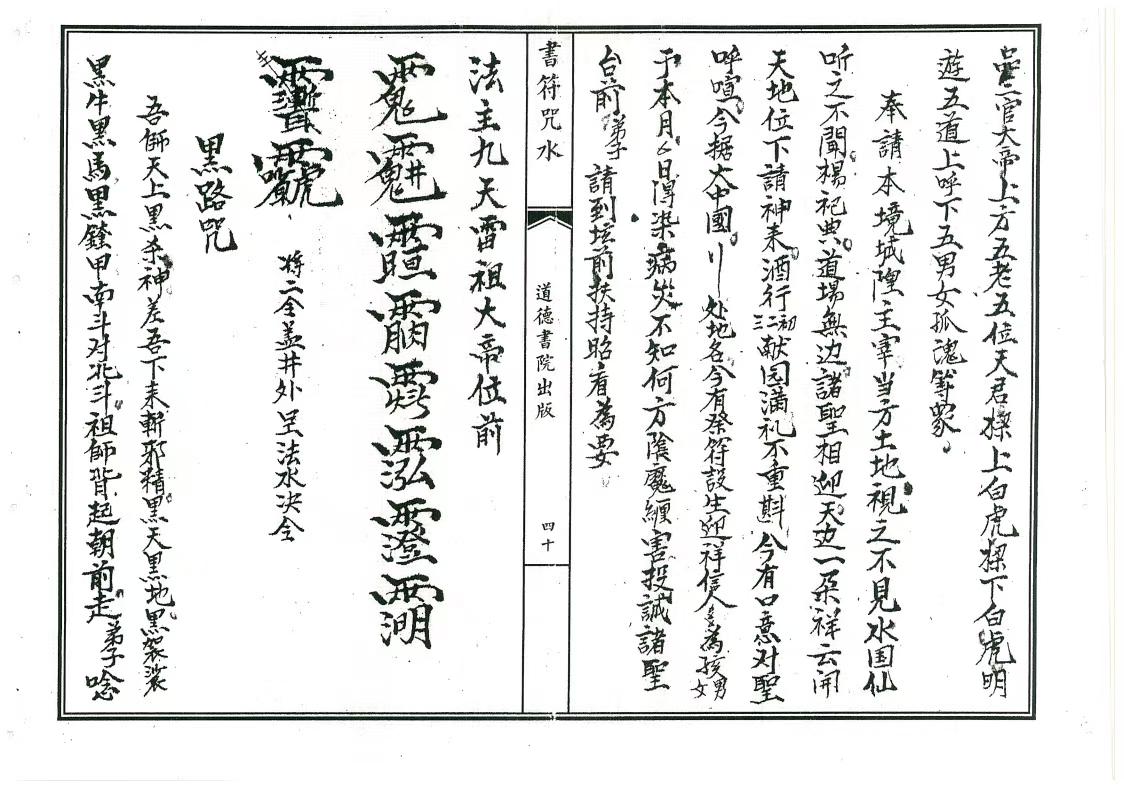 官大帝上方五老五位天君操上白虎操下白虎明
遊五道上呼下五男女孤魂等眾
奉請本境城隍主宰当方土地視之不見水国仙
听之不聞楊祀典道場無边諸聖相迎天边一朶祥云開
天地位下請神来酒行初二三献园满礼不重斟今有口意对聖
呼喧今据大中國川处地名今有祭符設生迎祥信人為孩男女
于本月日傳染病災不知何方陰魔纏害投誠諸聖
台前弟子請到坛前扶持照看為要
書符咒水
道德書院出版
四十
法主九天雷祖大帝位前
将二全盖井外呈法水决令
黑路咒
吾師天上黑杀神差吾下来斬邪精黑天黑地黑袈裟
黑牛黑馬黑鐙甲南斗对北斗祖師背起朝前走弟子唸